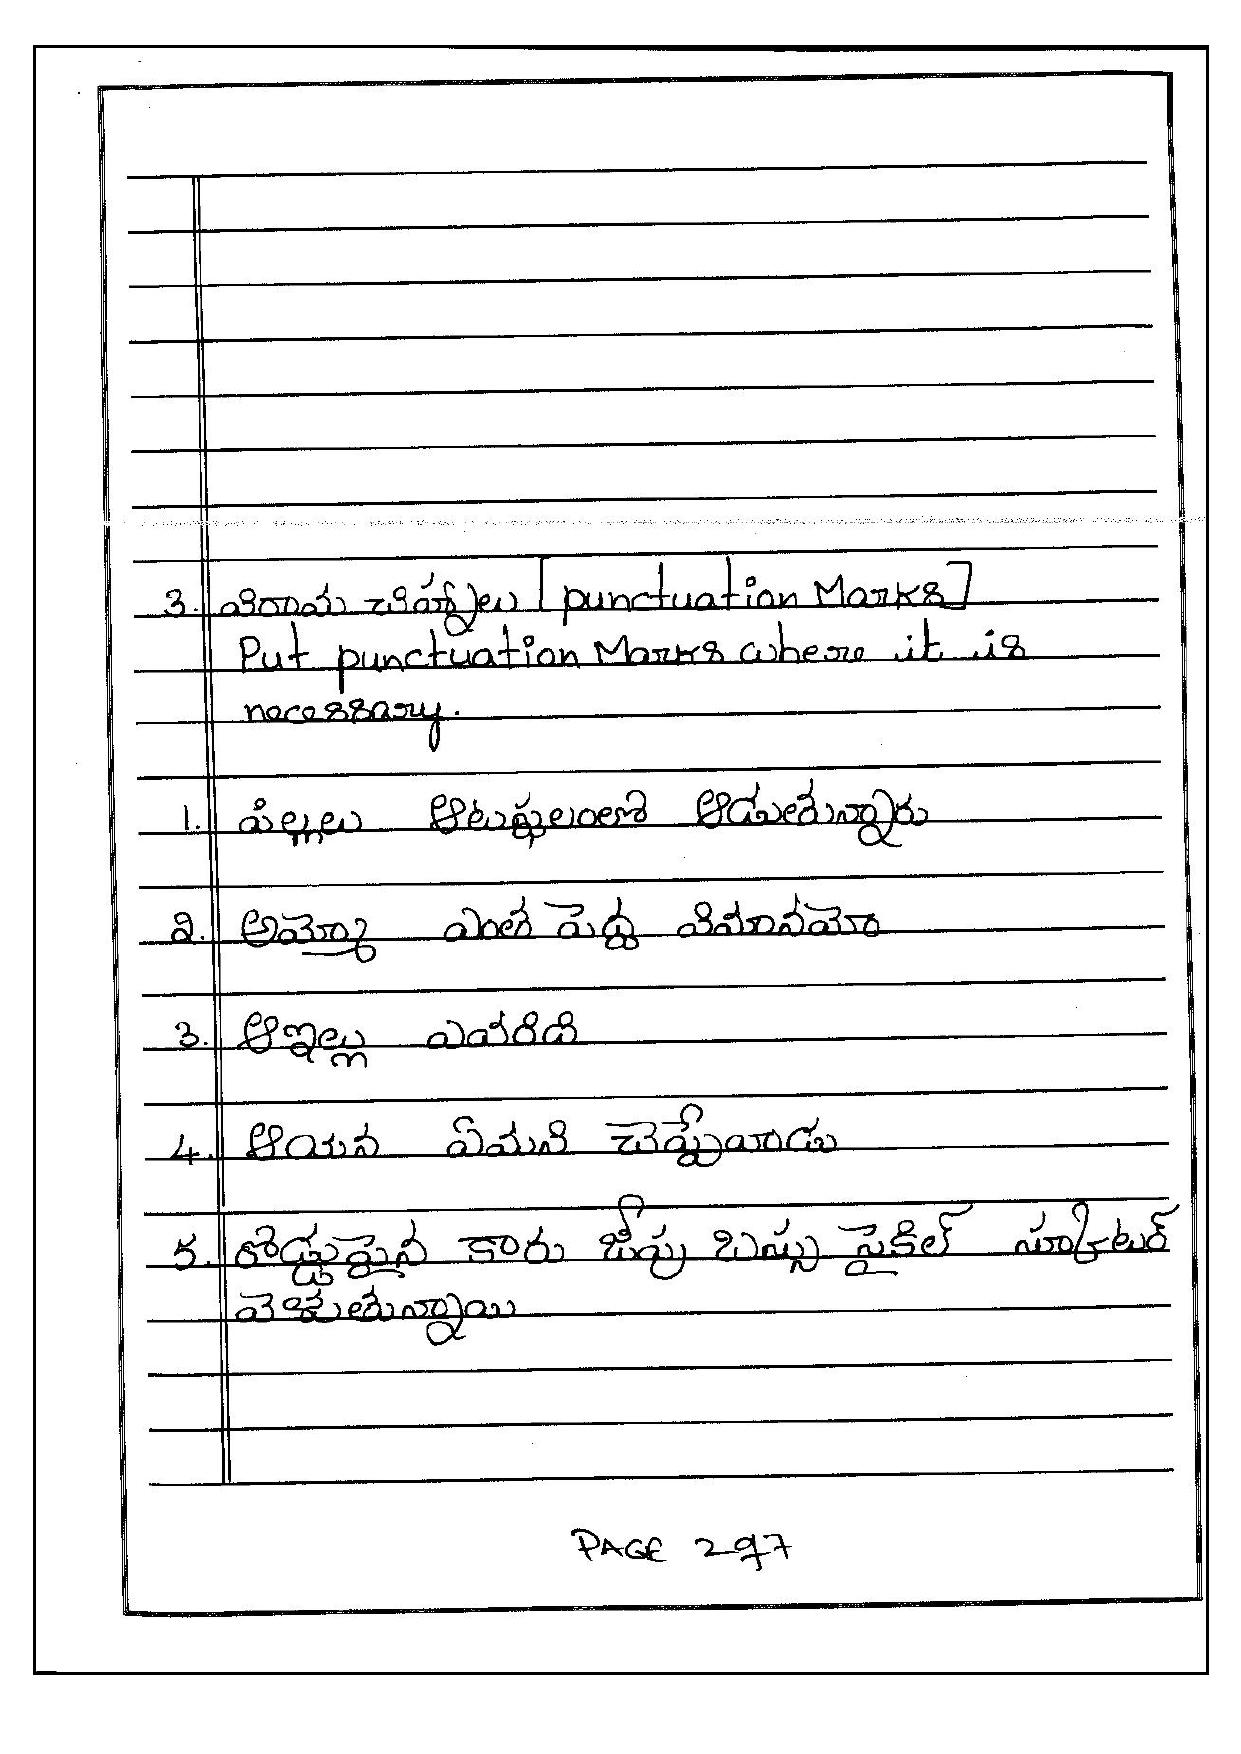 3. విరామ చిహ్నాలు [punctuation Marks]
Put punctuation Marks where it is
necessary.
1. పిల్లలు ఆటస్థలంలో ఆడుతున్నారు
2. అమ్మో ఎంత పెద్ద విమానమో
3. ఆ ఇల్లు ఎవరిది
4. ఆయన ఏమని చెప్పేవాడు
5. రోడ్డుపైన కారు జీపు బస్సు సైకిల్ స్కూటర్
వెళుతున్నాయి
PAGE 297